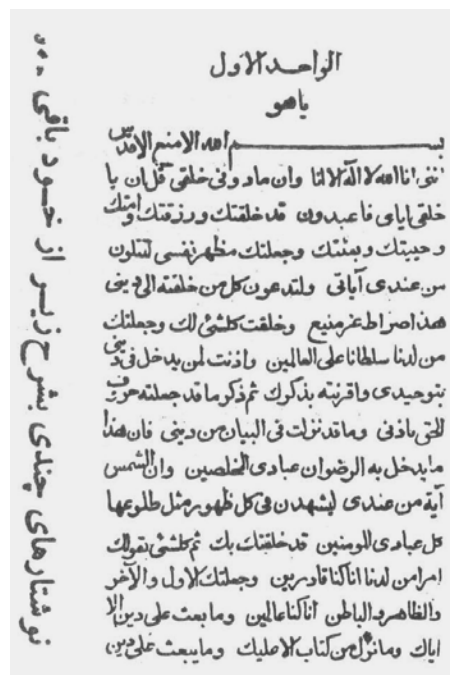 الواحد الاول
یاهو
بسم الله الامنع الاقدس
اننی انا الله لا اله الا انا وان مادونی خلقی قل ان یا
خلقی ایای فاعبدون قد خلقتک ورزقتک وامتک
وحییتک وبعثتک وجعلتک مظهر نفسی لتتلون
من عندی آیاتی ولتدعون کل من خلقته الی دینی
هذا صراط عز منیع وخلقت کلشئ لک وجعلتک
من لدنا سلطانا علی العالمین واذنت لمن یدخل فی دینی
بتوحیدی واقرنته بذکرک ثم ذکر ما قد جعلته حروف
الحی باذنی وما قد نزلت فی البیان من دینی فان هذا
ما یدخل به الرضوان عبادی المخلصین وان الشمس
آیة من عندی لیشهدن فی کل ظهور مثل طلوعها
کل عبادی المومنین قد خلقتک بک ثم کلشئ بقولک
امرا من لدنا انا کنا قادرین وجعلتک الاول والآخر
والظاهر والباطن انا کنا عالمین وما بعث علی دین الا
ایاک وما نزل من کتاب الا علیک وما یبعث علی دین
نوشتارهای چندی بشرح زیر از خود باقی